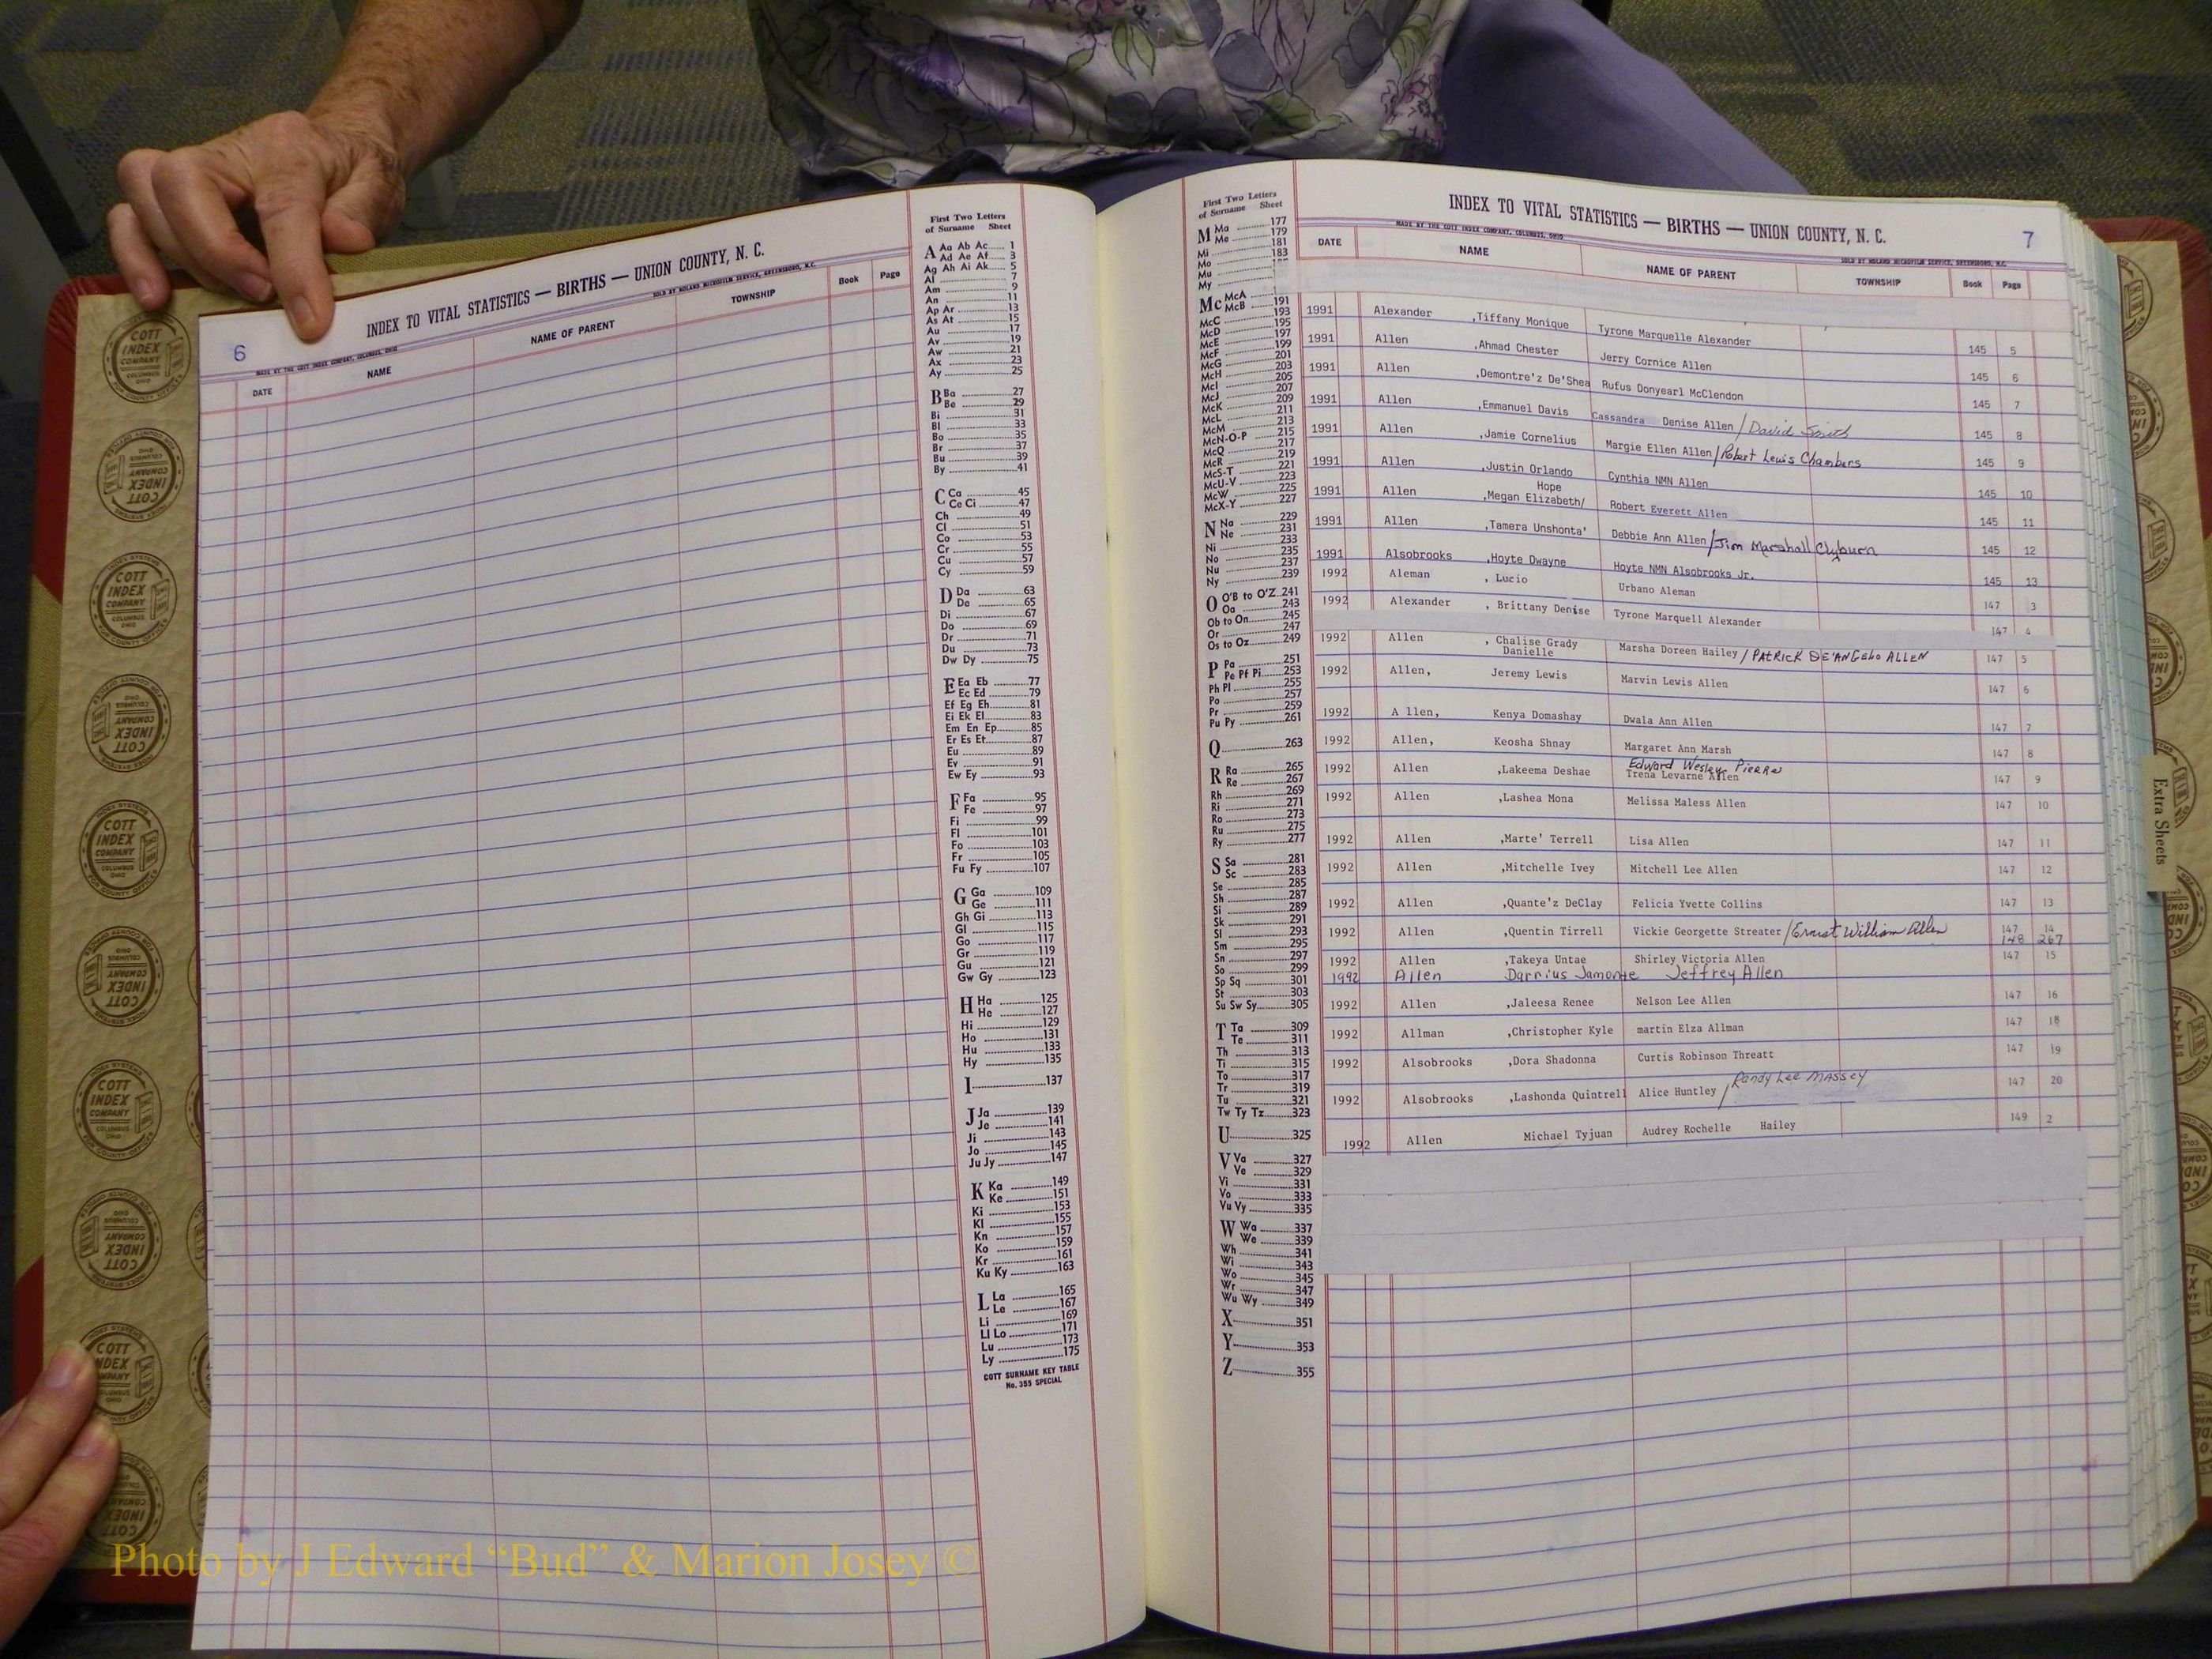 6
INDEX TO VITAL STATISTICS — BIRTHS — UNION COUNTY, N. C.
MADE BY THE COTT INDEX COMPANY, COLUMBUS, OHIO
SOLD BY NOLAND MICROFILM SERVICE, GREENSBORO, N.C.
DATE NAME NAME OF PARENT TOWNSHIP Book Page
First Two Letters
of Surname Sheet
A Aa Ab Ac 1
Ad Ae Af 3
Ag Ah Ai Ak 5
Al 7
Am 9
An 11
Ap Ar 13
As At 15
Au 17
Av 19
Aw 21
Ax 23
Ay 25
B Ba 27
Be 29
Bi 31
Bl 33
Bo 35
Br 37
Bu 39
By 41
C Ca 45
Ce Ci 47
Ch 49
Cl 51
Co 53
Cr 55
Cu 57
Cy 59
D Da 63
De 65
Di 67
Do 69
Dr 71
Du 73
Dw Dy 75
E Ea Eb 77
Ec Ed 79
Ef Eg Eh 81
Ei Ek El 83
Em En Ep 85
Er Es Et 87
Eu 89
Ev 91
Ew Ey 93
F Fa 95
Fe 97
Fi 99
Fl 101
Fo 103
Fr 105
Fu Fy 107
G Ga 109
Ge 111
Gh Gi 113
Gl 115
Go 117
Gr 119
Gu 121
Gw Gy 123
H Ha 125
He 127
Hi 129
Ho 131
Hu 133
Hy 135
I 137
J Ja 139
Je 141
Ji 143
Jo 145
Ju Jy 147
K Ka 149
Ke 151
Ki 153
Kl 155
Kn 157
Ko 159
Kr 161
Ku Ky 163
L La 165
Le 167
Li 169
Ll Lo 171
Lu 173
Ly 175
COTT SURNAME KEY TABLE
No. 355 SPECIAL
First Two Letters
of Surname Sheet
M Ma 177
Me 179
Mi 181
Mo 183
Mu
My
Mc McA 191
McB 193
McC 195
McD 197
McE 199
McF 201
McG 203
McH 205
McI 207
McJ 209
McK 211
McL 213
McM 215
McN-O-P 217
McQ 219
McR 221
McS-T 223
McU-V 225
McW 227
McX-Y
N Na 229
Ne 231
Ni 233
No 235
Nu 237
Ny 239
O O'B to O'Z 241
Oa 243
Ob to On 245
Or 247
Os to Oz 249
P Pa 251
Pe Pf Pi 253
Ph Pl 255
Po 257
Pr 259
Pu Py 261
Q 263
R Ra 265
Re 267
Rh 269
Ri 271
Ro 273
Ru 275
Ry 277
S Sa 281
Sc 283
Se 285
Sh 287
Si 289
Sk 291
Sl 293
Sm 295
Sn 297
So 299
Sp Sq 301
St 303
Su Sw Sy 305
T Ta 309
Te 311
Th 313
Ti 315
To 317
Tr 319
Tu 321
Tw Ty Tz 323
U 325
V Va 327
Ve 329
Vi 331
Vo 333
Vu Vy 335
W Wa 337
We 339
Wh 341
Wi 343
Wo 345
Wr 347
Wu Wy 349
X 351
Y 353
Z 355
INDEX TO VITAL STATISTICS — BIRTHS — UNION COUNTY, N. C.
7
MADE BY THE COTT INDEX COMPANY, COLUMBUS, OHIO
SOLD BY NOLAND MICROFILM SERVICE, GREENSBORO, N.C.
DATE NAME NAME OF PARENT TOWNSHIP Book Page
1991 Alexander ,Tiffany Monique Tyrone Marquelle Alexander 145 5
1991 Allen ,Ahmad Chester Jerry Cornice Allen 145 6
1991 Allen ,Demontre'z De'Shea Rufus Donyearl McClendon 145 7
1991 Allen ,Emmanuel Davis Cassandra Denise Allen / David Smith 145 8
1991 Allen ,Jamie Cornelius Margie Ellen Allen / Robert Lewis Chambers 145 9
1991 Allen ,Justin Orlando Cynthia NMN Allen 145 10
1991 Allen ,Megan Elizabeth/ Hope Robert Everett Allen 145 11
1991 Allen ,Tamera Unshonta' Debbie Ann Allen / Jim Marshall Clyburn 145 12
1991 Alsobrooks ,Hoyte Dwayne Hoyte NMN Alsobrooks Jr. 145 13
1992 Aleman , Lucio Urbano Aleman 147 3
1992 Alexander , Brittany Denise Tyrone Marquell Alexander 147 4
1992 Allen , Chalise Grady Danielle Marsha Doreen Hailey / PATRICK DE'ANGELO ALLEN 147 5
1992 Allen, Jeremy Lewis Marvin Lewis Allen 147 6
1992 A llen, Kenya Domashay Dwala Ann Allen 147 7
1992 Allen, Keosha Shnay Margaret Ann Marsh 147 8
Edward Wesley Pierre
1992 Allen ,Lakeema Deshae Trena Levarne Allen 147 9
1992 Allen ,Lashea Mona Melissa Maless Allen 147 10
1992 Allen ,Marte' Terrell Lisa Allen 147 11
1992 Allen ,Mitchelle Ivey Mitchell Lee Allen 147 12
1992 Allen ,Quante'z DeClay Felicia Yvette Collins 147 13
1992 Allen ,Quentin Tirrell Vickie Georgette Streater / Ernest William Allen 147 14
148 267
1992 Allen ,Takeya Untae Shirley Victoria Allen 147 15
1992 Allen Darrius Jamonte Jeffrey Allen
1992 Allen ,Jaleesa Renee Nelson Lee Allen 147 16
1992 Allman ,Christopher Kyle martin Elza Allman 147 18
1992 Alsobrooks ,Dora Shadonna Curtis Robinson Threatt 147 19
1992 Alsobrooks ,Lashonda Quintrell Alice Huntley / Randy Lee MASSEY 147 20
1992 Allen Michael Tyjuan Audrey Rochelle Hailey 149 2
Extra Sheets
COTT INDEX COMPANY COLUMBUS OHIO
Photo by J Edward “Bud” & Marion Josey ©